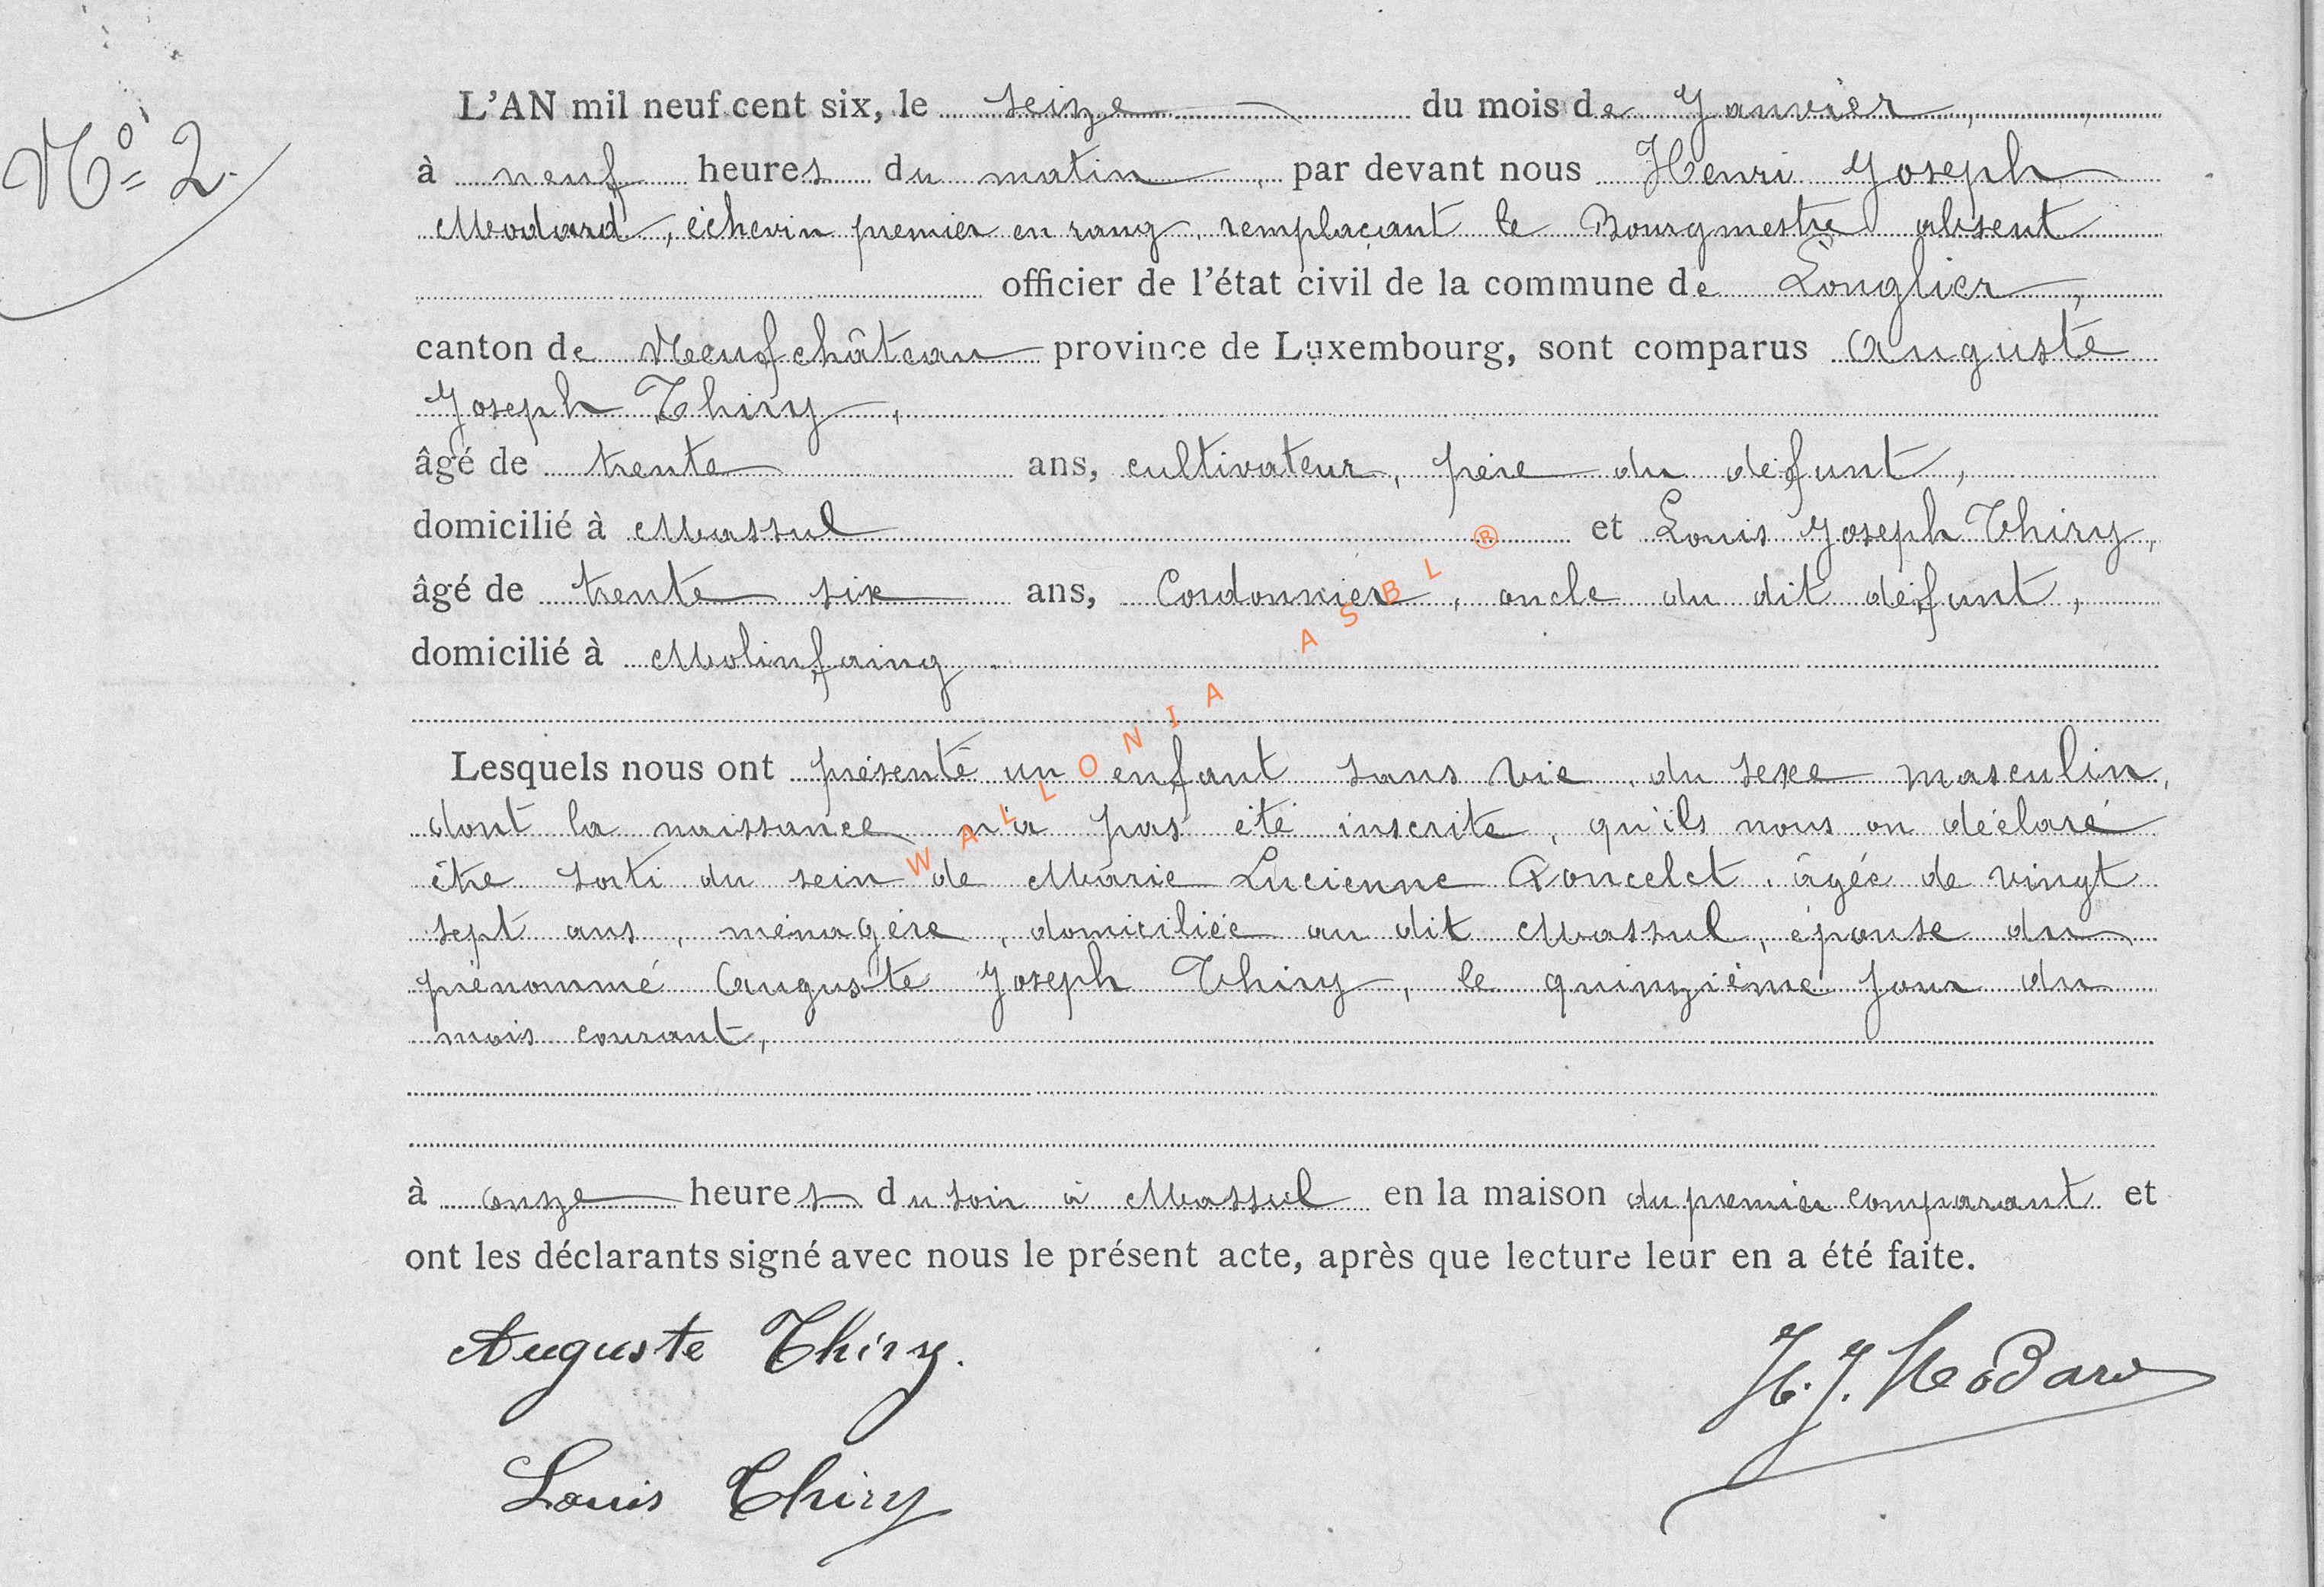 N° 2.
L'AN mil neuf cent six, le seize du mois de Janvier,
à neuf heures du matin, par devant nous Henri Joseph
Modard, échevin premier en rang, remplaçant le Bourgmestre absent
officier de l'état civil de la commune de Longlier,
canton de Neufchâteau province de Luxembourg, sont comparus Auguste
Joseph Thiry,
âgé de trente ans, cultivateur, père du défunt,
domicilié à Massul et Louis Joseph Thiry,
âgé de trente six ans, Cordonnier, oncle du dit défunt,
domicilié à Molinfaing.
Lesquels nous ont présenté un enfant sans vie, du sexe masculin,
dont la naissance n'a pas été inscrite, qu'ils nous on déclaré
être sorti du sein de Marie Lucienne Poncelet, âgée de vingt
sept ans, ménagère, domiciliée au dit Massul, épouse du
prénommé Auguste Joseph Thiry, le quinzième jour du
mois courant,
à onze heures du soir à Massul en la maison du premier comparant et
ont les déclarants signé avec nous le présent acte, après que lecture leur en a été faite.
Auguste Thiry.
H. J. Modard
Louis Thiry
WALLONIA ASBL ®